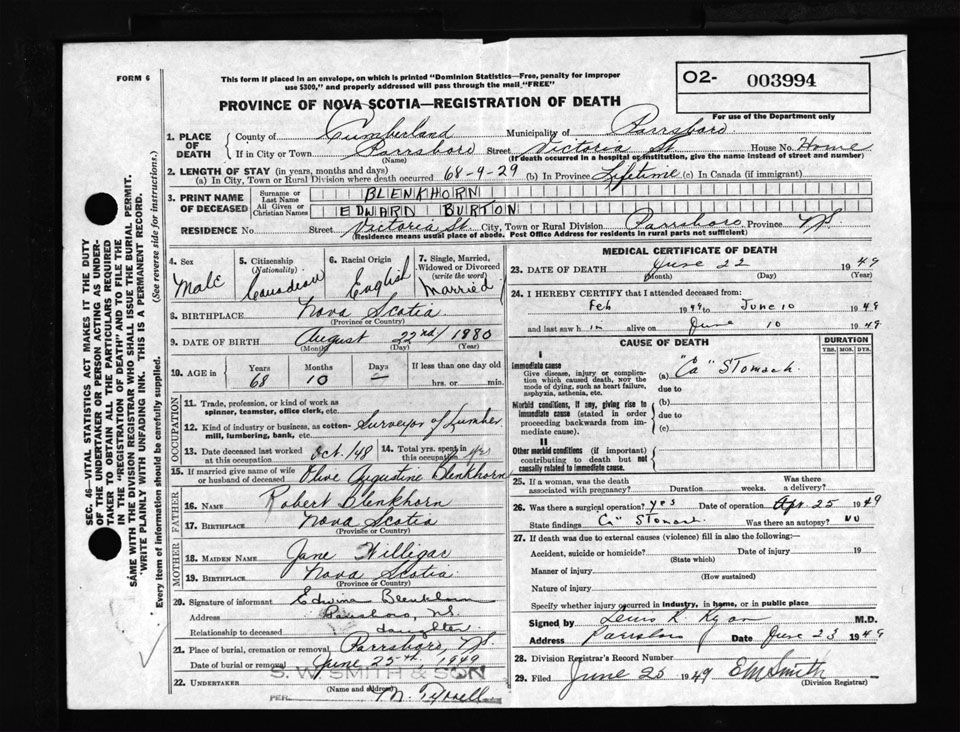 FORM 6
This form if placed in an envelope, on which is printed "Dominion Statistics—Free, penalty for improper
use $300," and properly addressed will pass through the mail "FREE"
O2- 003994
For use of the Department only
PROVINCE OF NOVA SCOTIA—REGISTRATION OF DEATH
1. PLACE OF DEATH
County of Cumberland Municipality of Parrsboro
If in City or Town Parrsboro Street Victoria St House No. Home
(Name) (If death occurred in a hospital or institution, give the name instead of street and number)
2. LENGTH OF STAY (in years, months and days)
(a) In City, Town or Rural Division where death occurred 68-9-29 (b) In Province Lifetime (c) In Canada (if immigrant)
3. PRINT NAME OF DECEASED
Surname or Last Name BLENKHORN
All Given or Christian Names EDWARD BURTON
RESIDENCE No. Street Victoria St. City, Town or Rural Division Parrsboro Province NS.
(Residence means usual place of abode. Post Office Address for residents in rural parts not sufficient)
4. Sex Male
5. Citizenship (Nationality) Canadian
6. Racial Origin English
7. Single, Married, Widowed or Divorced (write the word) Married
8. BIRTHPLACE Nova Scotia
(Province or Country)
9. DATE OF BIRTH August 22nd 1880
(Month) (Day) (Year)
10. AGE in Years 68 Months 10 Days — If less than one day old
hrs. or min.
OCCUPATION
11. Trade, profession, or kind of work as
spinner, teamster, office clerk, etc.
12. Kind of industry or business, as cotton-
mill, lumbering, bank, etc. Surveyor of Lumber
13. Date deceased last worked
at this occupation Oct. 48
14. Total yrs. spent in
this occupation
15. If married give name of wife
or husband of deceased Olive Augustine Blenkhorn
FATHER
16. NAME Robert Blenkhorn
17. BIRTHPLACE Nova Scotia
(Province or Country)
MOTHER
18. MAIDEN NAME Jane Willigar
19. BIRTHPLACE Nova Scotia
(Province or Country)
20. Signature of informant Edwina Blenkhorn
Address Parrsboro, N.S.
Relationship to deceased daughter
21. Place of burial, cremation or removal Parrsboro, N.S.
Date of burial or removal June 25th, 1949
S. W. SMITH & SON
22. UNDERTAKER
(Name and address)
PER.
MEDICAL CERTIFICATE OF DEATH
23. DATE OF DEATH June 22 1949
(Month) (Day) (Year)
24. I HEREBY CERTIFY that I attended deceased from:
Feb 1949 to June 10 1949
and last saw him alive on June 10 1949
CAUSE OF DEATH
DURATION
YRS. MOS. DYS.
I
Immediate cause
Give disease, injury or complica-
tion which caused death, not the
mode of dying, such as heart failure,
asphyxia, asthenia, etc.
(a) "Ca" Stomach.
due to
Morbid conditions, if any, giving rise to
immediate cause (stated in order
proceeding backwards from im-
mediate cause).
(b)
due to
(c)
II
Other morbid conditions (if important)
contributing to death but not
causally related to immediate cause.
25. If a woman, was the death
associated with pregnancy? Duration weeks. Was there
a delivery?
26. Was there a surgical operation? yes Date of operation Apr. 25 1949
State findings "Ca" Stomach. Was there an autopsy? NO
27. If death was due to external causes (violence) fill in also the following:—
Accident, suicide or homicide? Date of injury 19
(State which)
Manner of injury
(How sustained)
Nature of injury
Specify whether injury occurred in industry, in home, or in public place
Signed by Lewis R. Ryan M.D.
Address Parrsboro Date June 23 1949
28. Division Registrar's Record Number
29. Filed June 25 1949 E M Smith
(Division Registrar)
SEC. 46—VITAL STATISTICS ACT MAKES IT THE DUTY
OF THE UNDERTAKER OR PERSON ACTING AS UNDER-
TAKER TO OBTAIN ALL THE PARTICULARS REQUIRED
IN THE "REGISTRATION OF DEATH" AND TO FILE THE
SAME WITH THE DIVISION REGISTRAR WHO SHALL ISSUE THE BURIAL PERMIT.
WRITE PLAINLY WITH UNFADING INK. THIS IS A PERMANENT RECORD.
Every item of information should be carefully supplied. (See reverse side for instructions.)